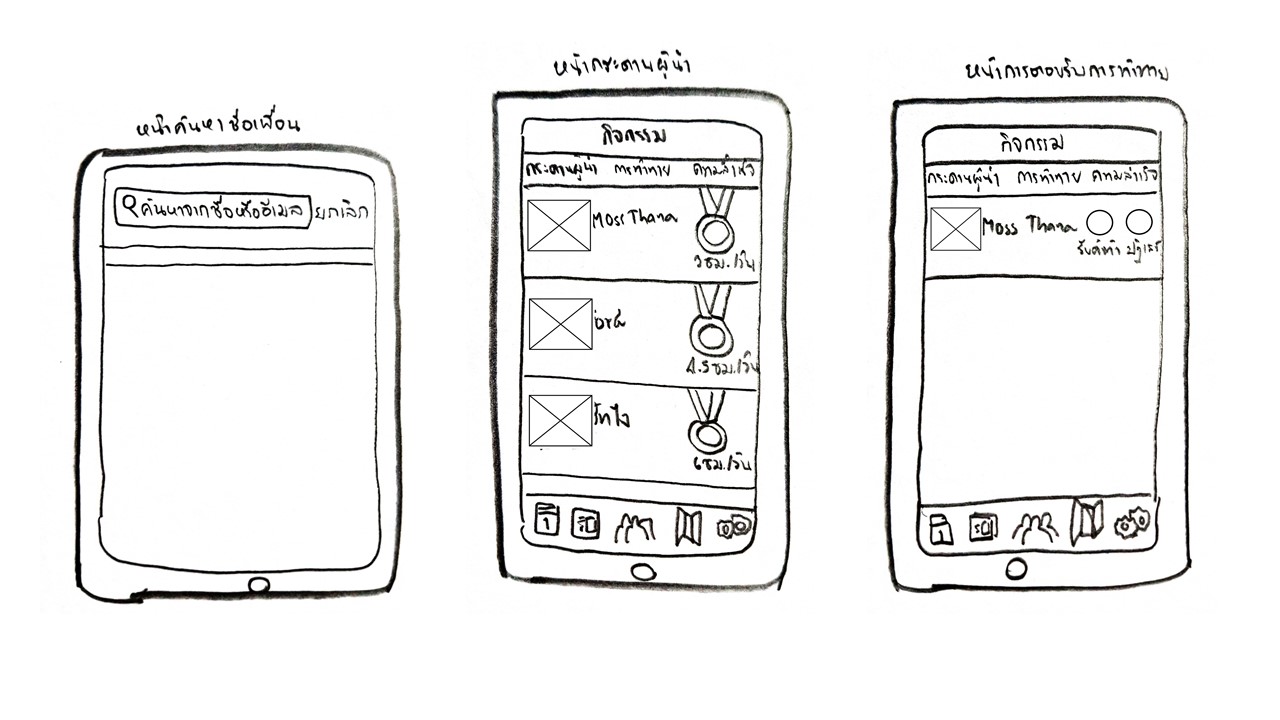 หน้าค้นหาชื่อเพื่อน
ค้นหาจากชื่อหรืออีเมล ยกเลิก
หน้ากระดานผู้นำ
กิจกรรม
กระดานผู้นำ การท้าทาย ความสำเร็จ
Moss Thana
3 ชม./วัน
4.5 ชม./วัน
6 ชม./วัน
1
หน้าการตอบรับการท้าทาย
กิจกรรม
กระดานผู้นำ การท้าทาย ความสำเร็จ
Moss Thana
รับคำท้า ปฏิเสธ
1